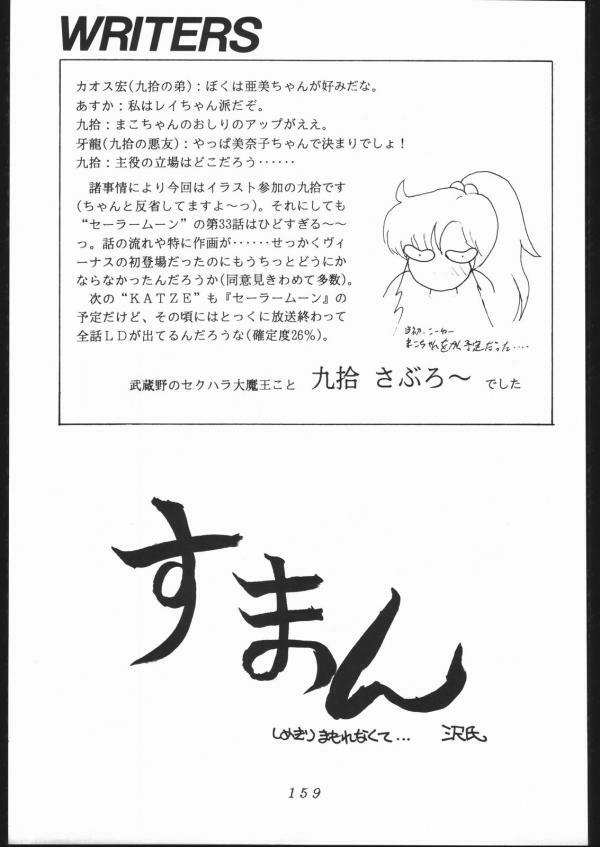 WRITERS
カオス宏(九拾の弟)：ぼくは亜美ちゃんが好みだな。
あすか：私はレイちゃん派だぞ。
九拾：まこちゃんのおしりのアップがええ。
牙龍(九拾の悪友)：やっぱ美奈子ちゃんで決まりでしょ！
九拾：主役の立場はどこだろう……
諸事情により今回はイラスト参加の九拾です
(ちゃんと反省してますよ～っ)。それにしても
“セーラームーン”の第33話はひどすぎる～～
っ。話の流れや特に作画が……せっかくヴィ
ーナスの初登場だったのにもうちっとどうにか
ならなかったんだろうか(同意見きわめて多数)。
次の“ＫＡＴＺＥ”も『セーラームーン』の
予定だけど、その頃にはとっくに放送終わって
全話ＬＤが出てるんだろうな(確定度26%)。
まこちゃんをかく予定だった....
武蔵野のセクハラ大魔王こと 九拾 さぶろ～ でした
すまん
しめきりまもれなくて... 沢氏
159